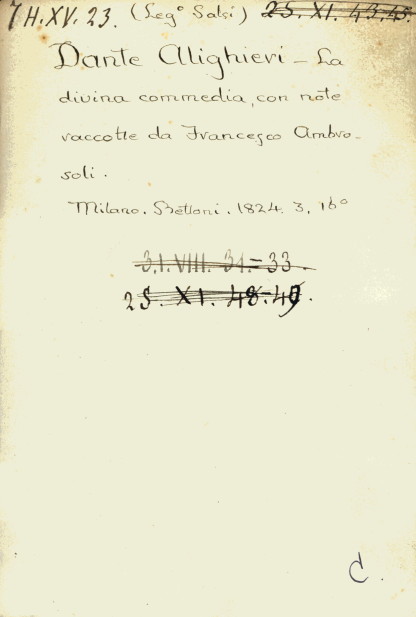 7 H.XV. 23. (Leg° Salsi) 25. XI. 43.45.
Dante Alighieri – La
divina commedia, con note
raccolte da Francesco Ambro-
soli.
Milano. Bettoni. 1824. 3. 16°
3.I.VIII. 31.-33.
25. XI. 48-49.
C.